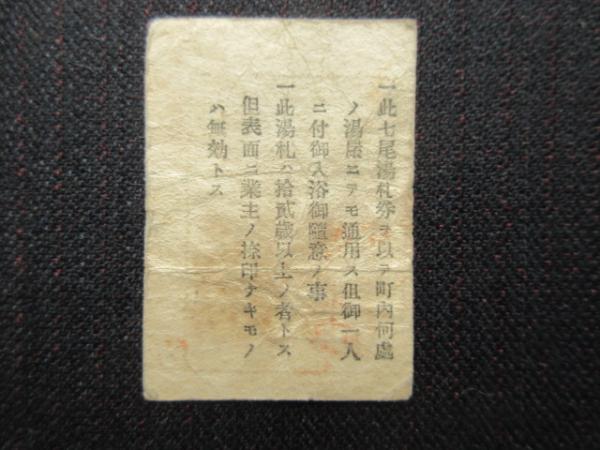 一此七尾湯札券ヲ以テ町內何處
ノ湯屋ニテモ通用ス但御一人
ニ付御入浴御隨意ノ事
一此湯札ハ拾貳歲以上ノ者トス
但表面ニ業主ノ捺印ナキモノ
ハ無効トス